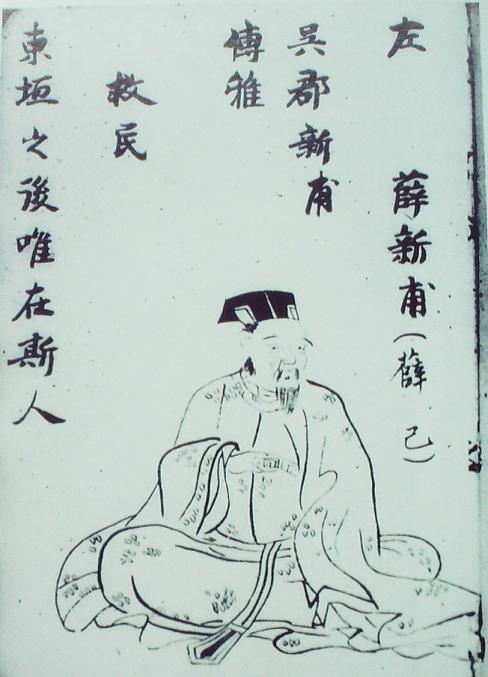 左 薛新甫(薛己)
吳郡新甫
博雅
救民
東垣之後唯在斯人